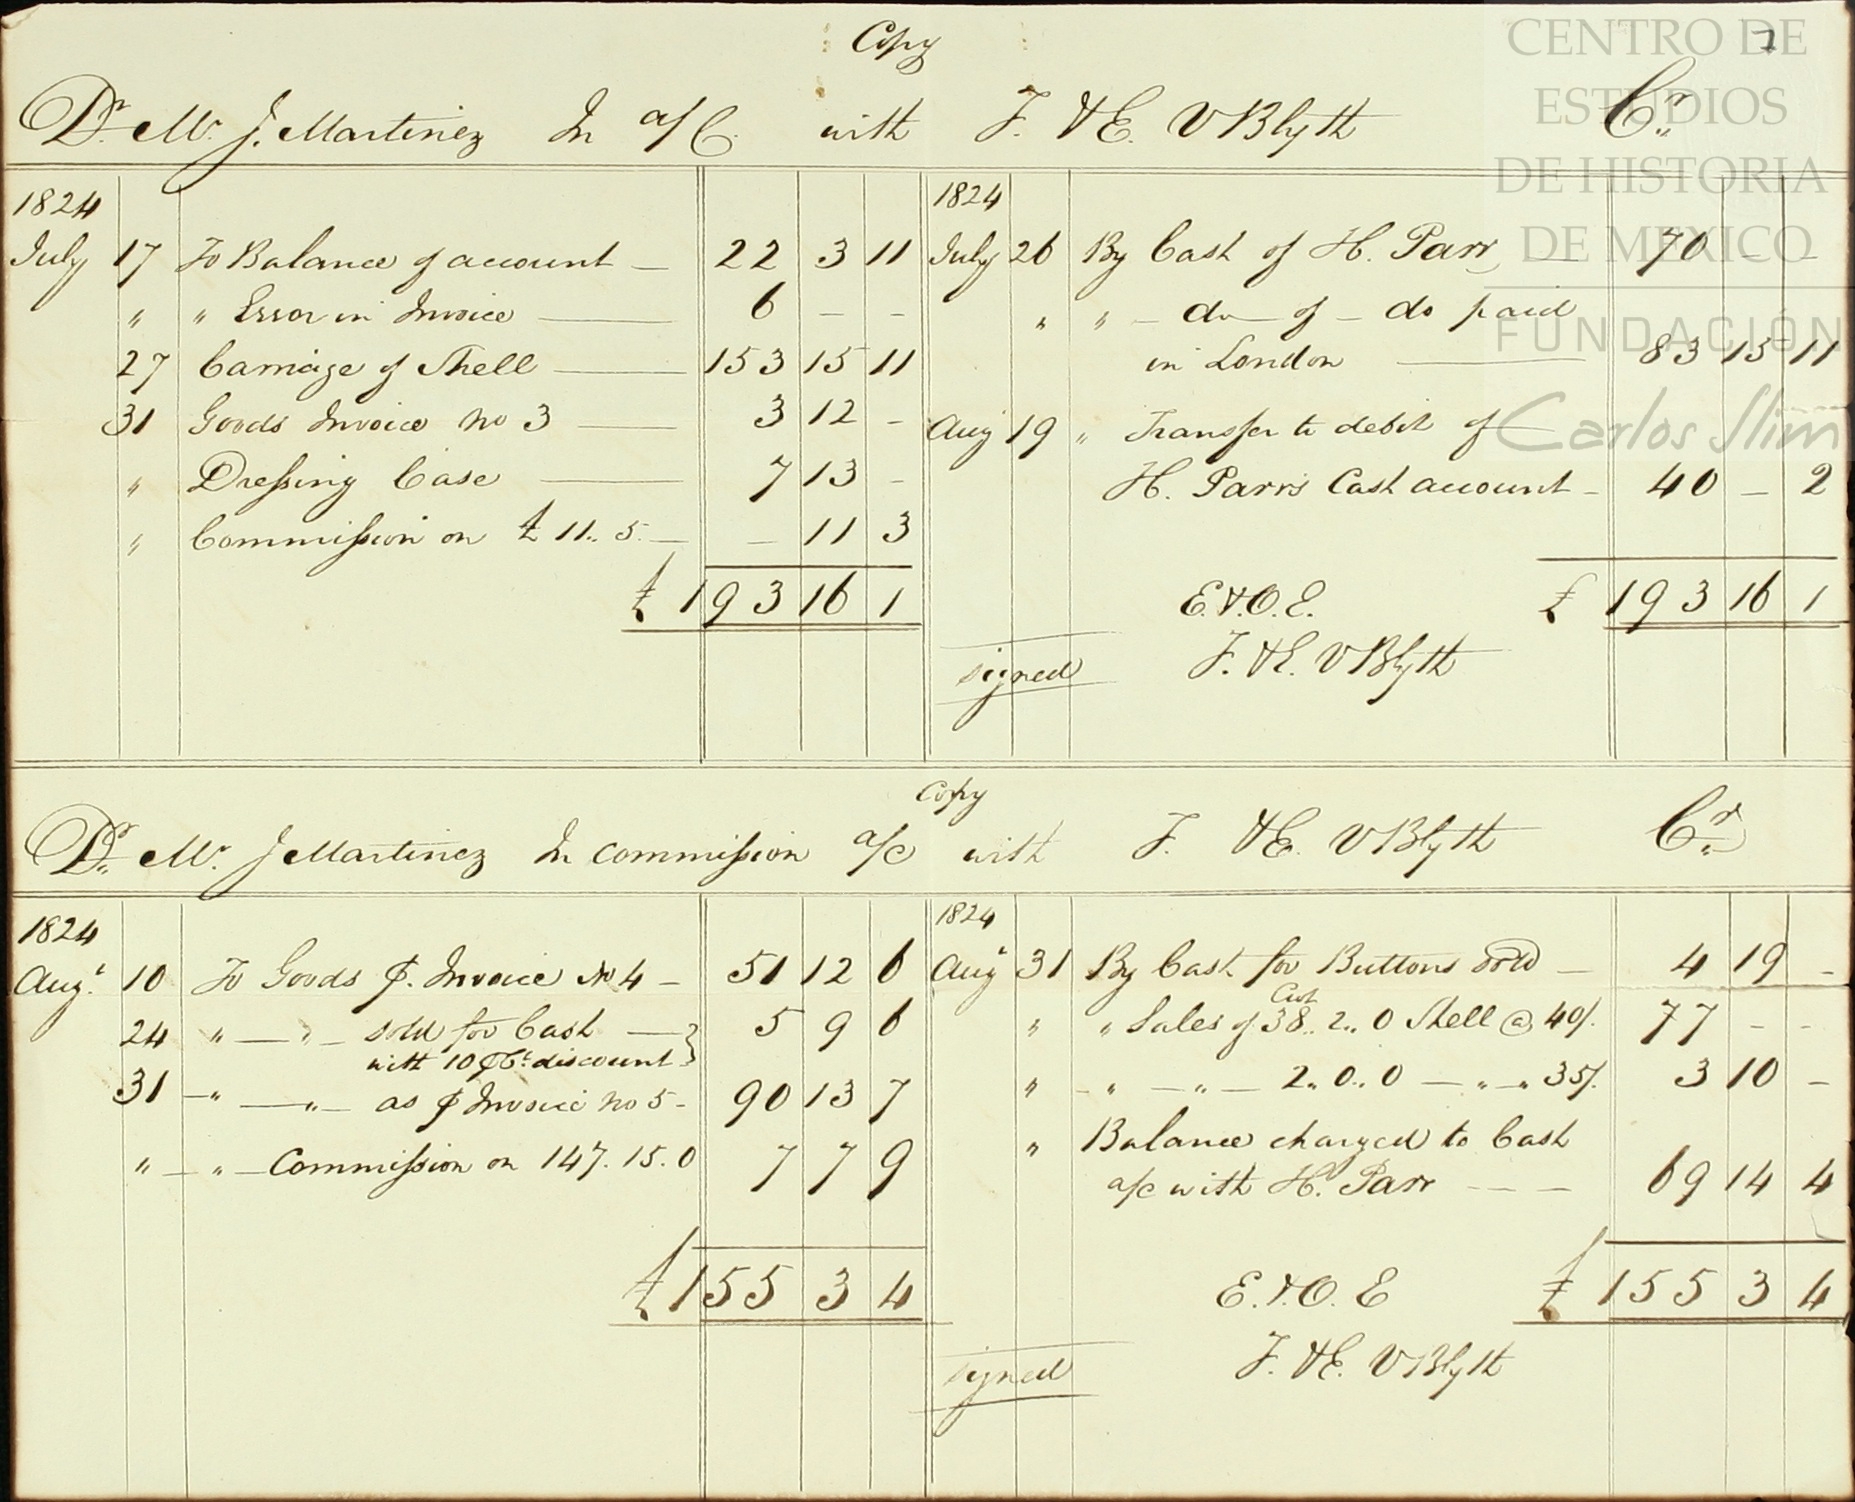 Copy
7
Dr. Mr. J. Martinez In a/C. with F. & E. V Blyth Cr.
1824
July 17 To Balance of account — 22 3 11
" " Error in Invoice — 6 - -
27 Carriage of Shell — 153 15 11
31 Goods Invoice No 3 — 3 12 -
" Dressing Case — 7 13 -
" Commission on £ 11.. 5. — - 11 3
£ 193 16 1
1824
July 26 By Cash of H. Parr — 70 - -
" " - do - of - do paid
in London — 83 15 11
Aug 19 " Transfer to debit of
H. Parr's Cash account - 40 - 2
E. & O. E. £ 193 16 1
signed F. & E. V Blyth
Copy
Dr. Mr. J Martinez In commission a/c with F. & E. V Blyth Cr.
1824
Augt. 10 To Goods ⅌. Invoice No 4 - 51 12 6
24 " — " - sold for Cash — 5 9 6
with 10 ⅌Ct. discount
31 - " — " - as ⅌ Invoice No 5 - 90 13 7
" - " - Commission on 147. 15. 0 7 7 9
£ 155 3 4
1824
Augt 31 By Cash for Buttons sold - 4 19 -
Cwt
" " Sales of 38.. 2.. 0 Shell @ 40/. 77 - -
" - " - " - 2.. 0.. 0 — " - " 35/. 3 10 -
" Balance charged to Cash
a/c with H. Parr - - - 69 14 4
E. & O. E £ 155 3 4
signed F. & E. V Blyth
CENTRO DE
ESTUDIOS
DE HISTORIA
DE MEXICO
FUNDACIÓN
Carlos Slim